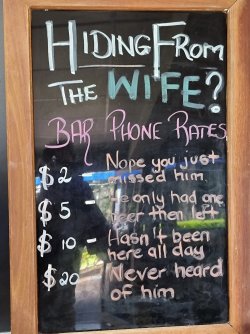 HIDING FROM
THE WIFE?
BAR PHONE RATES
$2 - Nope you just
missed him.
$5 - He only had one
beer then left
$10 - Hasn't been
here all day
$20 - Never heard
of him